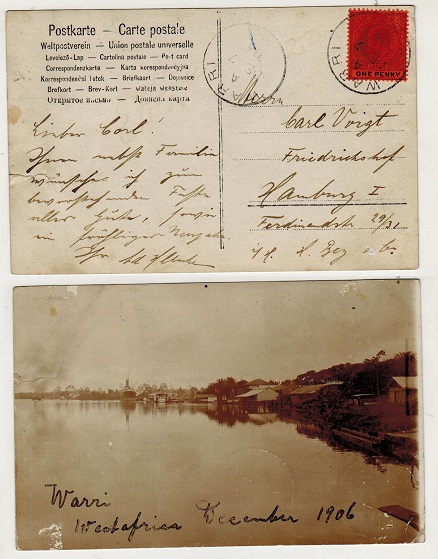 Postkarte - Carte postale
Weltpostverein - Union postale universelle
Levelező-Lap - Cartolina postale - Post card
Correspondenzkarte - Karta korespondencyjna
Korespondenční listek - Briefkaart - Dopisnice
Brefkort - Brev-Kort
Открытое письмо - Дописна карта
WARRI
WARRI
ONE PENNY
Lieber Carl!
Ihnen nebst Familie
wünsche ich zum
bevorstehenden Feste
alles Gute, sowie
ein kräftiges Neujahr
Ihr
Herrn
Carl Voigt
Friedrichshof
Hamburg I
Ferdinandstr 29/31
Warri
Westafrica December 1906